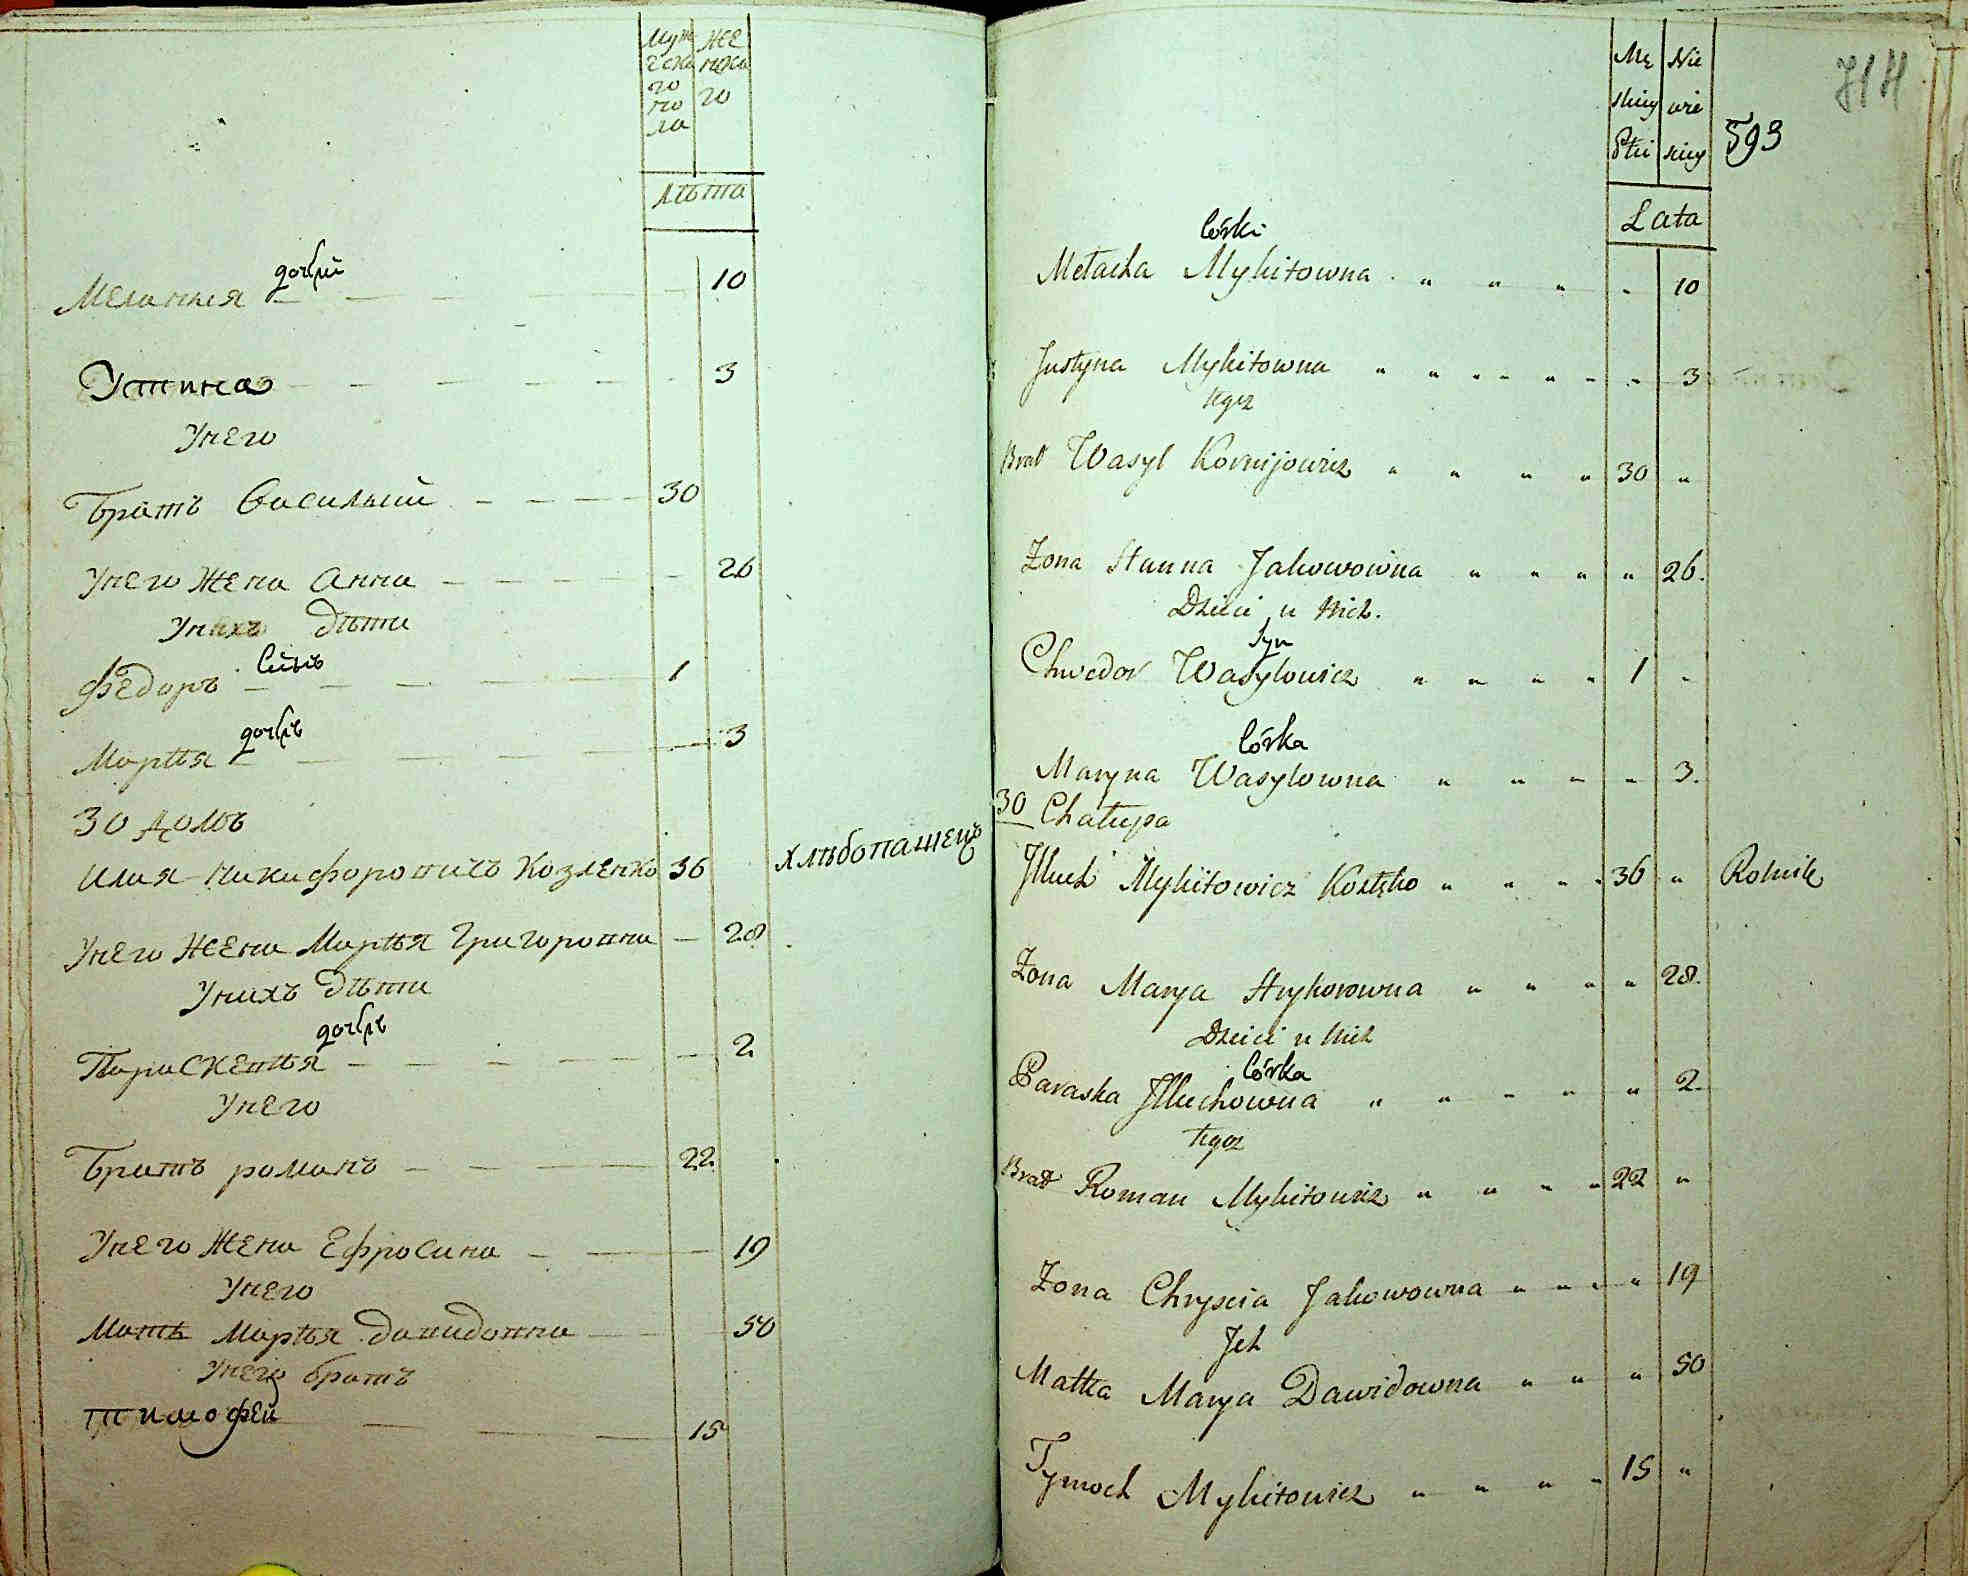 Муж
ческа
го
по
ла
Же
нска
го
лѣта
дочери
Меланья 10
Устина 3
Унего
Братъ Василий 30
Унего Жена Анна 26
Унихъ дѣти
Сынъ
Федоръ 1
дочь
Марья 3
30 домъ
Илия Никифоровичъ Козленко 36 хлѣбопашецъ
Унего Жена Марья Григоровна 28
Унихъ дѣти
дочь
Параскевья 2
Унего
Братъ романъ 22
Унего Жена Ефросина 19
Унего
Мать Марья давидовна 50
Унего братъ
тимофей 15
Mę
skiey
Płci
Nie
wie
sciey
Lata
593
córki
Mełacha Mykitowna 10
Justyna Mykitowna 3
tegoz
Brat Wasyl Kornijowicz 30
Żona Hanna Jakowowna 26.
Dzieci u Nich.
Syn
Chwedor Wasylowicz 1
córka
Maryna Wasylowna 3.
30 Chałupa
Illuch Mykitowicz 36 Rolnik
Żona Marya Hryhorowna 28.
Dzieci u Nich
córka
Paraska Illuchowna 2.
tegoz
Brat Roman Mykitowicz 22
Żona Chryscia Jakowowna 19
Jch
Matka Marya Dawidowna 50
Tymoch Mykitowicz 15